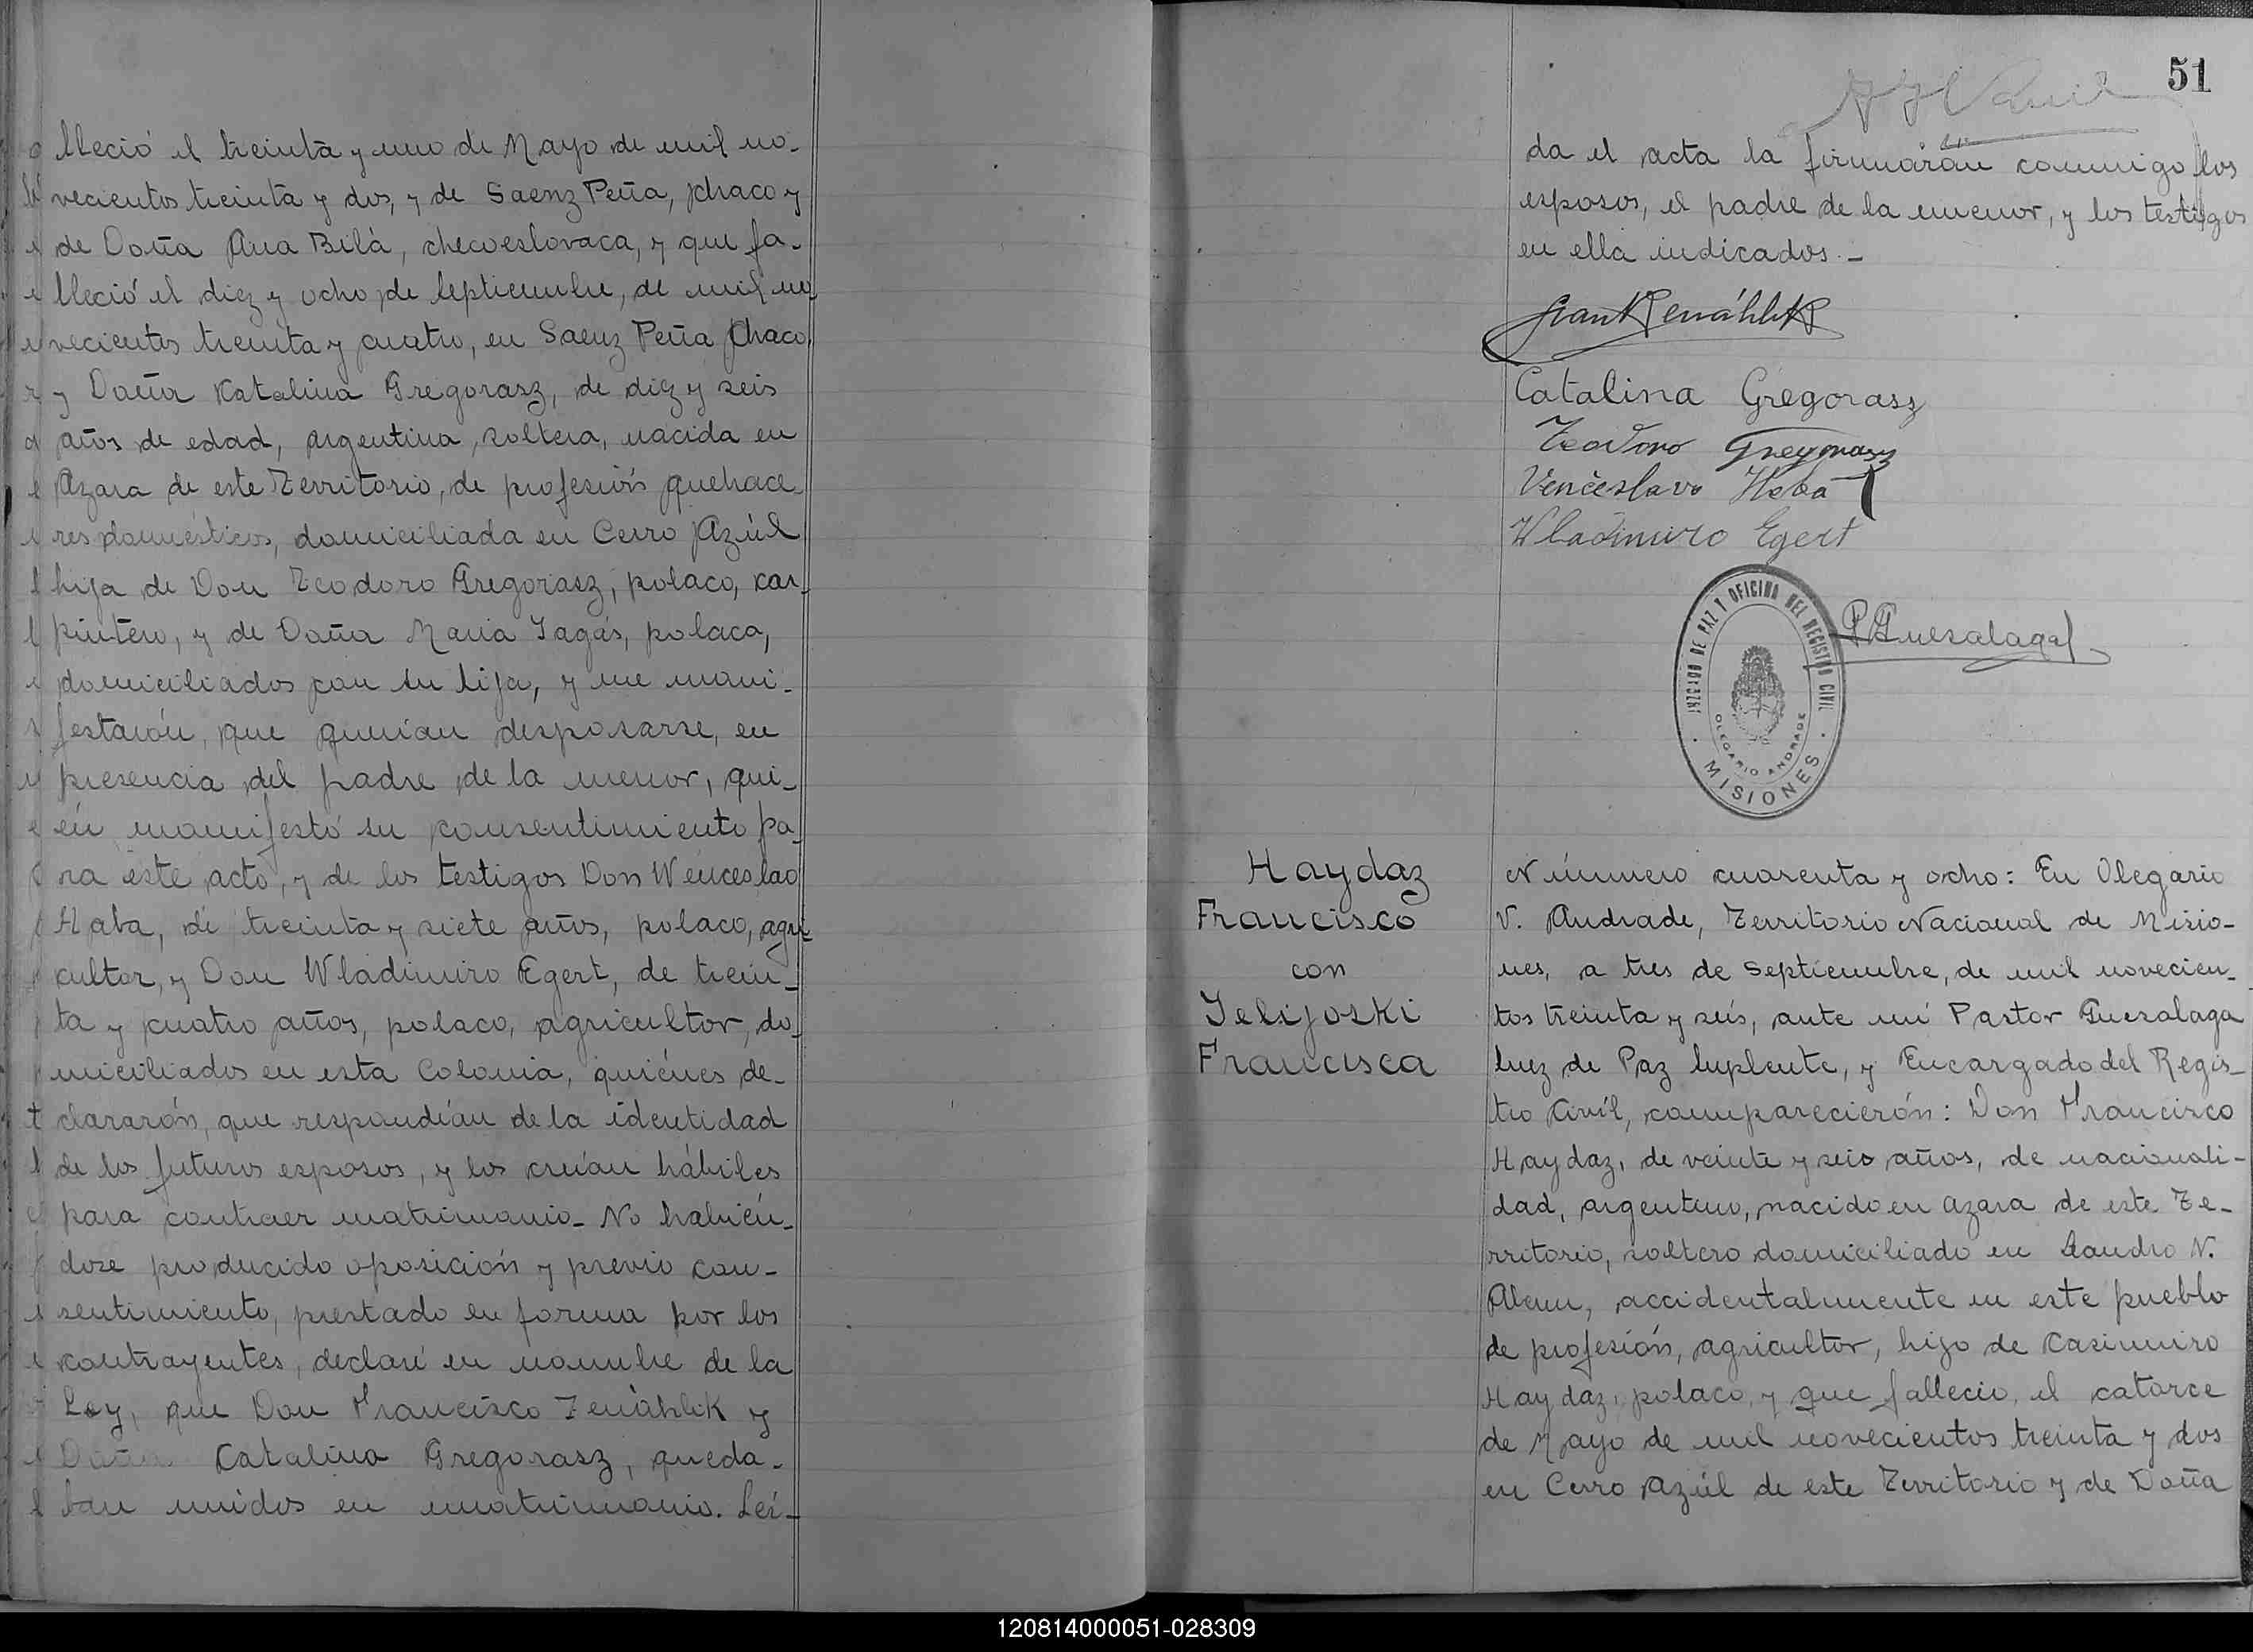 lleció el treinta y uno de Mayo de mil no-
vecientos treinta y dos, y de Saenz Peña, Chaco y
de Doña Ana Bilá, checoeslovaca, y que fa-
lleció el diez y ocho de Septiembre, de mil no
vecientos treinta y cuatro, en Saenz Peña Chaco,
y Doña Katalina Gregorasz, de diez y seis
años de edad, argentina, soltera, nacida en
Azara de este Territorio, de profesión quehace-
res domésticos, domiciliada en Cerro Azúl
hija de Don Teodoro Gregorasz, polaco, car-
pintero, y de Doña Maria Jagás, polaca,
domiciliados con su hija, y me mani-
festarón, que querían desposarse, en
presencia del padre de la menor, qui-
én manifestó su consentimiento pa-
ra éste acto, y de los testigos Don Wenceslao
Haba, de treinta y siete años, polaco, agri
cultor, y Don Wladimiro Egert, de trein-
ta y cuatro años, polaco, agricultor, do-
miciliados en esta Colonia, quiénes de-
clararón, que respondían de la identidad
de los futuros esposos, y los creían hábiles
para contraer matrimonio- No habién-
dose producido oposición y previo con-
sentimiento, prestado en forma por los
contrayentes, declaré en nombre de la
Ley, que Don Francisco Zenáhlik y
Doña Catalina Gregorasz, queda-
ban unidos en matrimonio. Leí-
51
da el acta la firmarán conmigo los
esposos, el padre de la menor, y los testigos
en ella indicados.-
Catalina Gregorasz
Teodoro Gregorasz
Venčeslavo Haba
Wladimiro Egert
JUZGADO DE PAZ Y OFICINA DEL REGISTRO CIVIL
OLEGARIO ANDRADE
MISIONES
P. Guesalaga
Haydaz
Francisco
con
Jelijoski
Francisca
Número cuarenta y ocho: En Olegario
V. Andrade, Territorio Nacional de Misio-
nes, a tres de Septiembre, de mil novecien-
tos treinta y seis, ante mi Pastor Guesalaga
Juez de Paz Suplente, y Encargado del Regis-
tro Civíl, comparecierón: Don Francisco
Haydaz, de veinte y seis años, de nacionali-
dad, argentino, nacido en Azara de este Te-
rritorio, soltero domiciliado en Leandro N.
Alem, accidentalmente en este pueblo
de profesión, agricultor, hijo de Casimiro
Haydaz, polaco, y que fallecio, el catorce
de Mayo de mil novecientos treinta y dos
en Cerro Azúl de este Territorio y de Doña
120814000051-028309